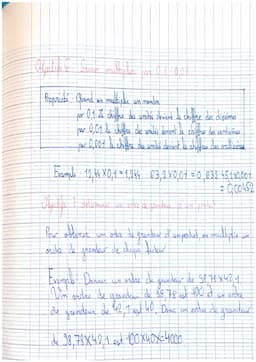 Objectif 6 : Savoir multiplier par 0,1 0,01
Propriété : Quand on multiplie un nombre
par 0,1 le chiffre des unités devient le chiffre des dixièmes
par 0,01 le chiffre des unités devient le chiffre des centièmes
par 0,001 le chiffre des unités devient le chiffre des millièmes
Exemple : 12,44 X 0,1 = 1,244 63,2 X 0,01 = 0,632 45,2 X 0,001
= 0,0452
Objectif 7 : déterminer un ordre de grandeur d'un produit
Pour obtenir un ordre de grandeur d'un produit, on multiplie un
ordre de grandeur de chaque facteur
Exemple : Donner un ordre de grandeur de 98,78 X 42,1
Un ordre de grandeur de 98,78 est 100 et un ordre
de grandeur de 42,1 est 40. Donc un ordre de grandeur
de 98,78 X 42,1 est 100 X 40 = 4000